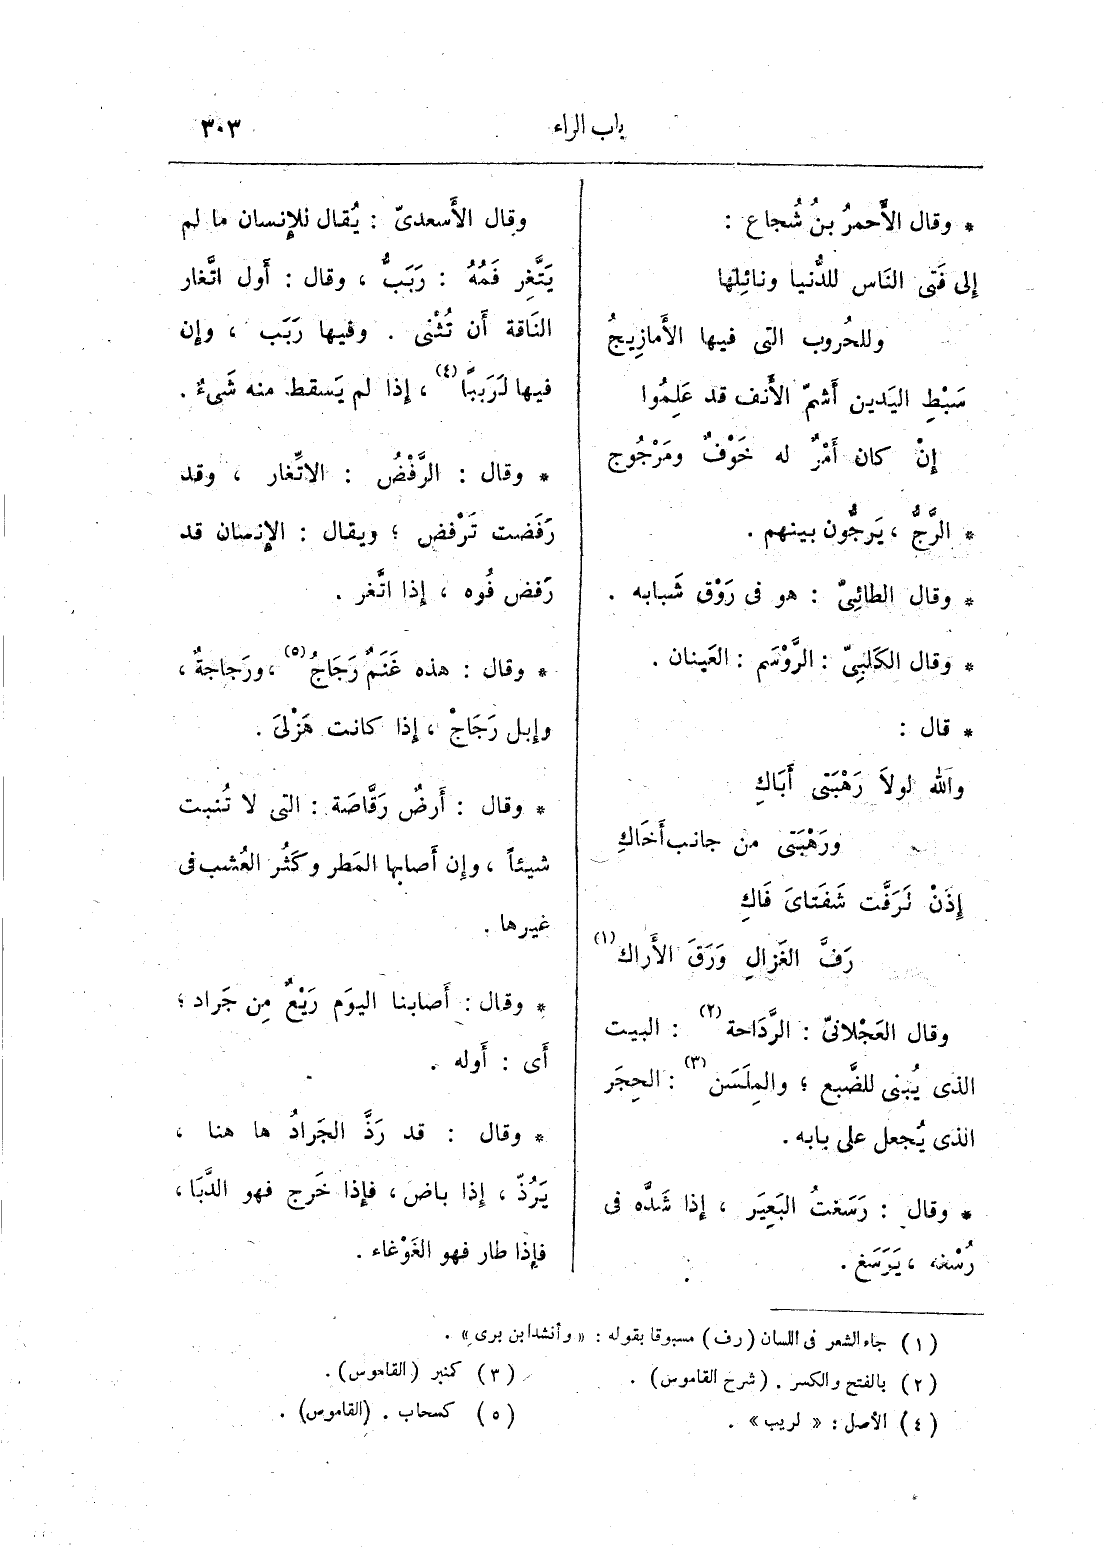 باب الراء
٣٠٣
* وقال الأَحمرُ بنُ شُجاع :
إلى فَتى النَاس للدُّنيا ونائِلها
وللحُروب التى فيها الأَمازِيجُ
سَبْطِ اليَدين أَشمّ الأَنف قد عَلِمُوا
إنْ كان أَمْرٌ له خَوْفٌ ومَرْجُوج
* الرَّجُّ ، يَرجُّون بينهم .
* وقال الطائِىّ : هو فى رَوْق شَبابه .
* وقال الكَلبِىّ : الرَّوْسَم : العَينان .
* قال :
والله لولاَ رَهْبَتى أَبَاكِ
ورَهْبَتى من جانب أَخَاكِ
إذَنْ لَرَفَّت شَفَتاىَ فَاكِ
رَفَّ الغَزالِ وَرَقَ الأَراك (١)
وقال العَجْلانىّ : الرَّدَاحة (٢) : البيت
الذى يُبنى للضَّبع ؛ والمِلَسَن (٣) : الحجَر
الذى يُجعل على بابه .
* وقال : رَسَغتُ البَعِيَر ، إذا شَدَّه فى
رُسْغه ، يَرَسَغ .
وقال الأَسعدىّ : يُقال للإنسان ما لم
يَتَّغِر فَمُهُ : رَبَبٌّ ، وقال : أَول اتَّغار
النَاقة أَن تُثْنى . وفيها رَبَب ، وإن
فيها لَرَببًا (٤) ، إذا لم يَسقط منه شَىءٌ .
* وقال : الرَّفْضُ : الاتِّغار ، وقد
رَفَضت تَرْفض ؛ ويقال : الإنسان قد
رَفض فُوه ، إذا اتَّغر .
* وقال : هذه غَنَمٌ رَجَاجُ (٥) ، ورَجاجةٌ ،
وإبل رَجَاجْ ، إذا كانت هَزْلىَ .
* وقال : أَرضٌ رَقَّاصَة : التى لا تُنبت
شيئاً ، وإن أَصابها المَطر وكَثُر العُشب فى
غيرها .
* وقال : أَصابنا اليوَم رَيْعٌ مِن جَراد ؛
أَى : أَوله .
* وقال : قد رَذَّ الجَرادُ ها هنا ،
يَرُذّ ، إذا باض ، فإذا خَرج فهو الدَّبَا ،
فإذا طار فهو الغَوْغاء .
(١) جاء الشعر فى اللسان (رف) مسبوقا بقوله : « وأنشد ابن برى » .
(٢) بالفتح والكسر . (شرح القاموس) .
(٣) كمنبر (القاموس) .
(٤) الأصل : « لريب » .
(٥) كسحاب . (القاموس) .